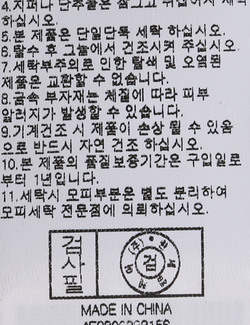 4.지퍼나 단추등은 잠그고 뒤집어서 세탁
하십시오.
5.본 제품은 단일단독 세탁 하십시오.
6.탈수 후 그늘에서 건조시켜 주십시오.
7.세탁부주의로 인한 탈색 및 오염된
제품은 교환할 수 없습니다.
8.금속 부자재는 체질에 따라 피부
알러지가 발생할 수 있습니다.
9.기계건조 시 제품이 손상 될 수 있음
으로 반드시 자연 건조 하십시오.
10.본 제품의 품질보증기간은 구입일로
부터 1년입니다.
11.세탁시 모피부분은 별도 분리하여
모피세탁 전문점에 의뢰하십시오.
검사필
검
MADE IN CHINA